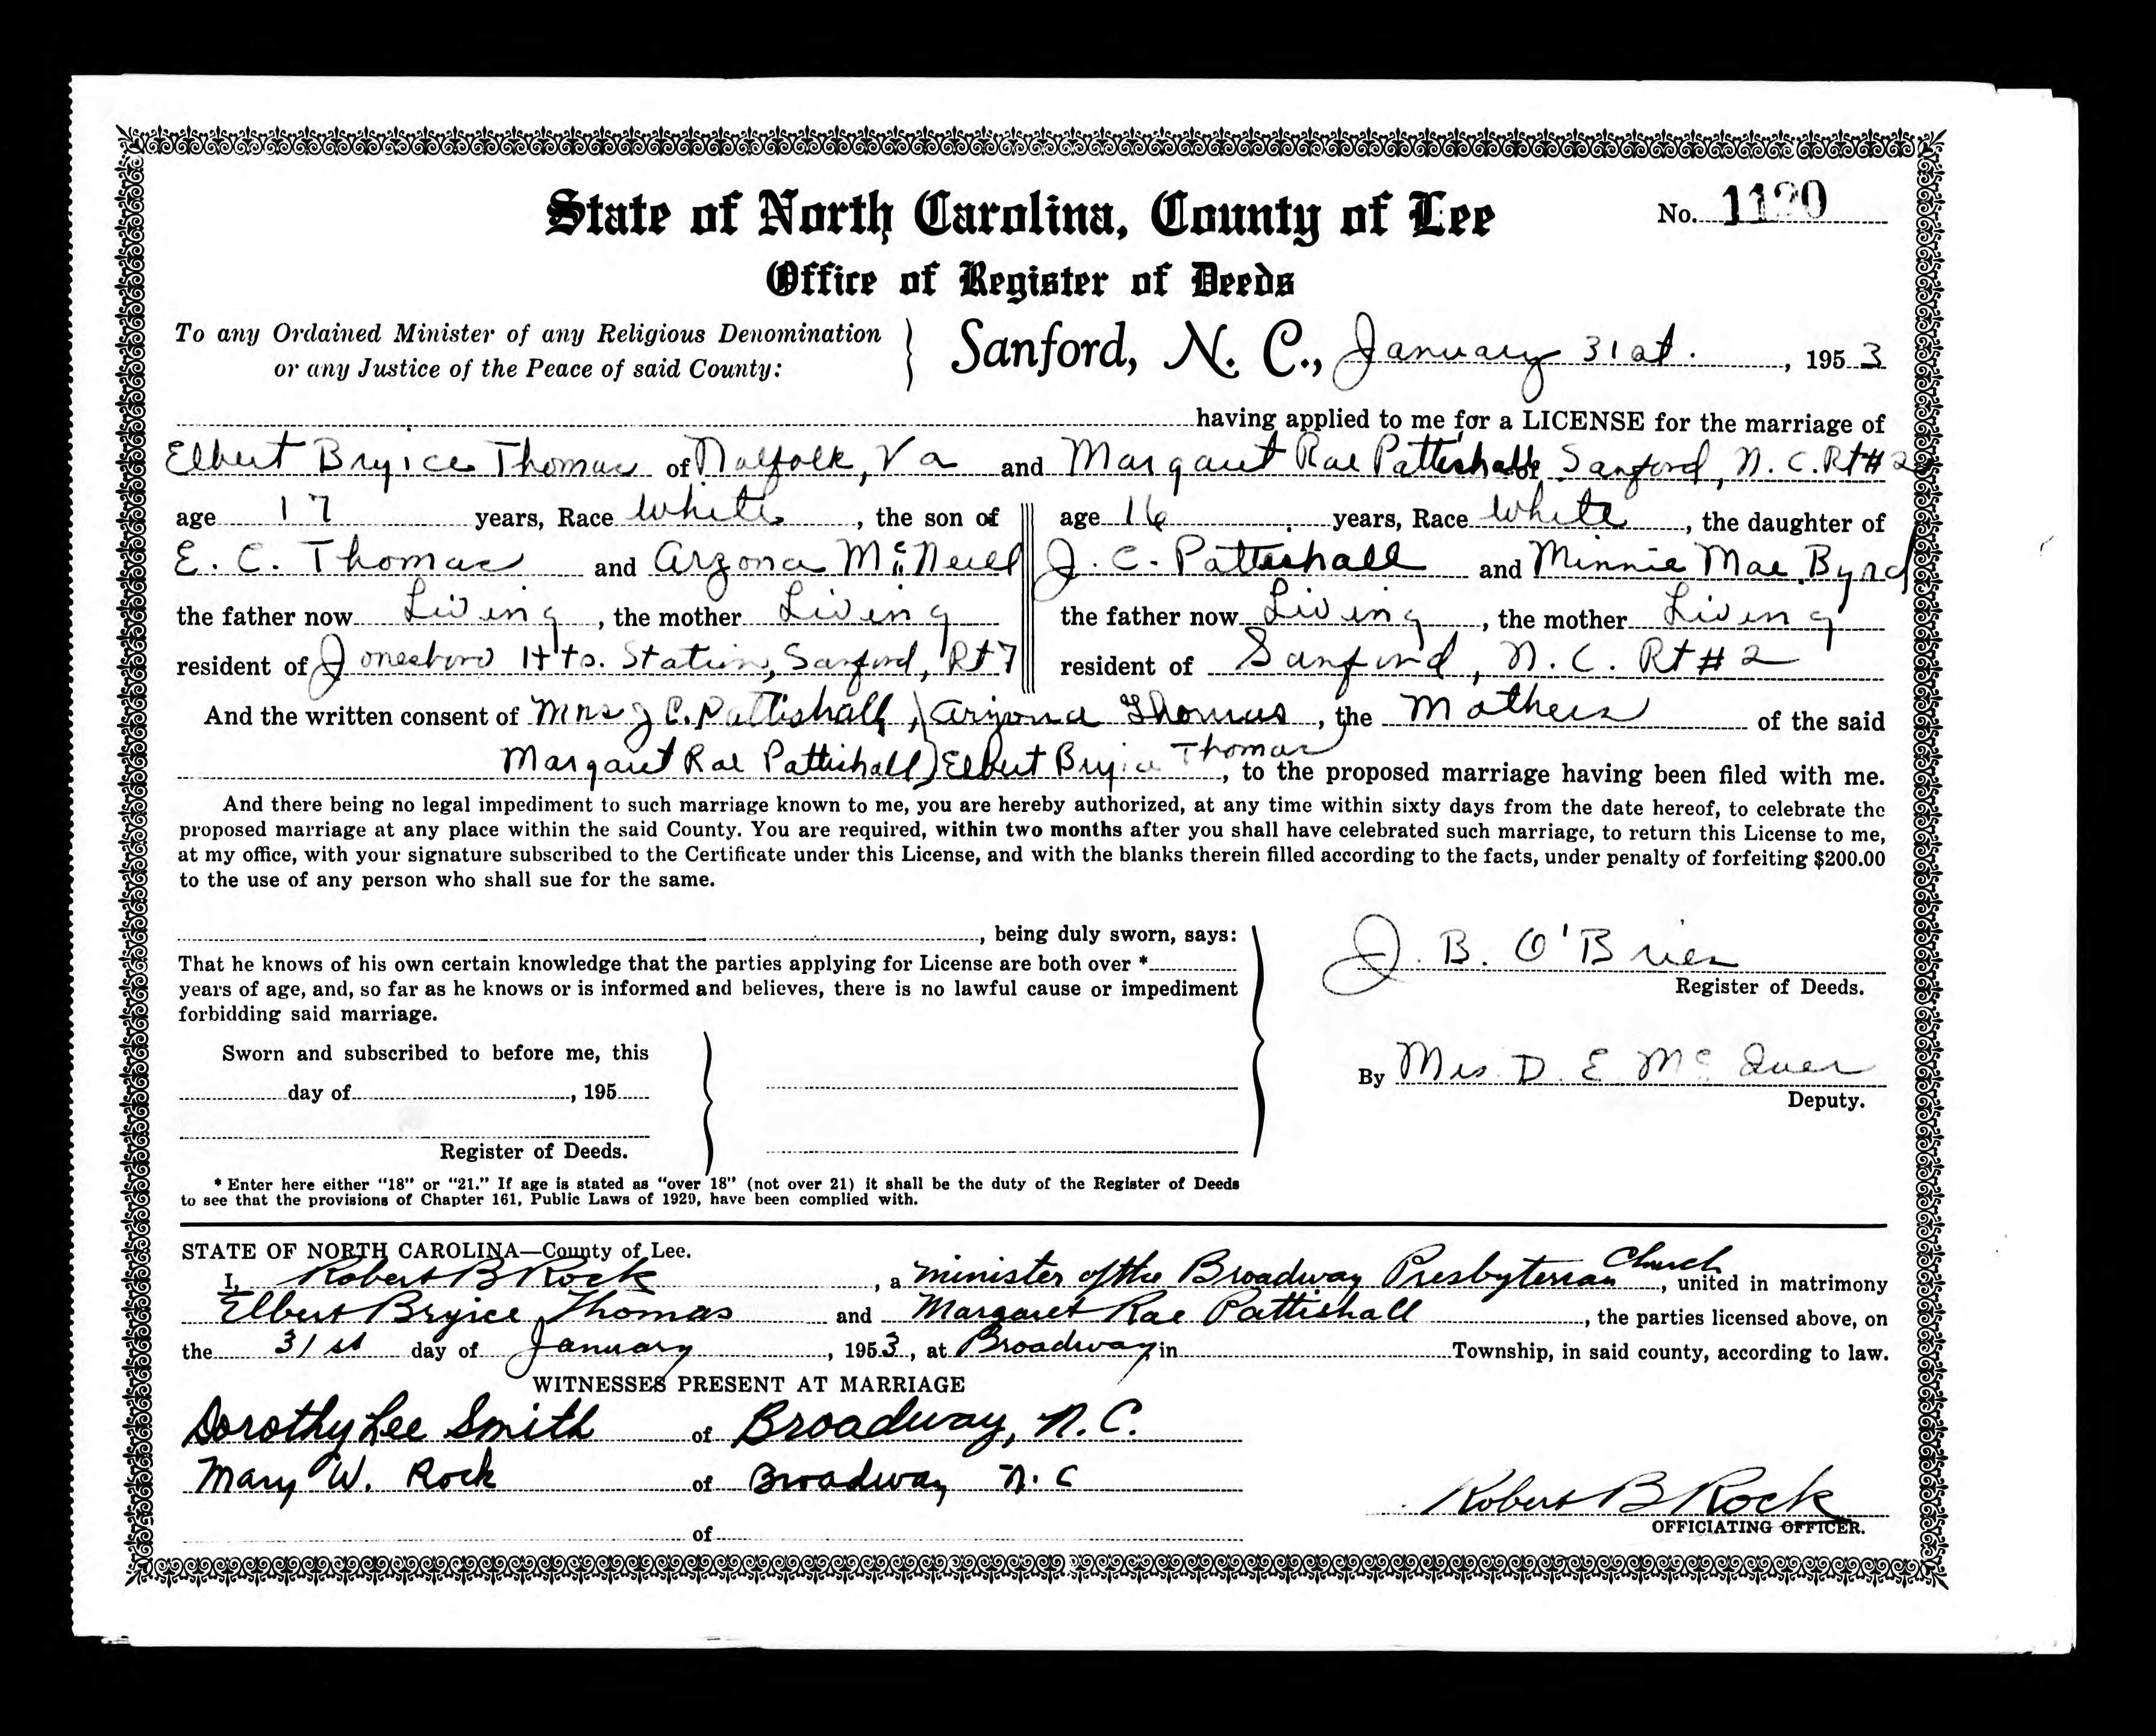 State of North Carolina, County of Lee
No. 1120
Office of Register of Deeds
To any Ordained Minister of any Religious Denomination
or any Justice of the Peace of said County:
Sanford, N. C., January 31st., 1953
having applied to me for a LICENSE for the marriage of
Elbert Bryice Thomas of Norfolk, Va and Margaret Rae Pattishall of Sanford, N. C. Rt #2
age 17 years, Race White, the son of
age 16 years, Race White, the daughter of
E. C. Thomas and Arzona McNeill
J. C. Pattishall and Minnie Mae Byrd
the father now Living, the mother Living
the father now Living, the mother Living
resident of Jonesboro Hts. Station, Sanford, Rt 7
resident of Sanford, N. C. Rt #2
And the written consent of Mrs J C. Pattishall,) Arizona Thomas, the Mothers of the said
Margaret Rae Pattishall) Elbert Bryice Thomas, to the proposed marriage having been filed with me.
And there being no legal impediment to such marriage known to me, you are hereby authorized, at any time within sixty days from the date hereof, to celebrate the
proposed marriage at any place within the said County. You are required, within two months after you shall have celebrated such marriage, to return this License to me,
at my office, with your signature subscribed to the Certificate under this License, and with the blanks therein filled according to the facts, under penalty of forfeiting $200.00
to the use of any person who shall sue for the same.
, being duly sworn, says:
That he knows of his own certain knowledge that the parties applying for License are both over *
years of age, and, so far as he knows or is informed and believes, there is no lawful cause or impediment
forbidding said marriage.
J. B. O'Brien
Register of Deeds.
Sworn and subscribed to before me, this
day of, 195
Register of Deeds.
By Mrs D. E Mc Iver
Deputy.
* Enter here either "18" or "21." If age is stated as "over 18" (not over 21) it shall be the duty of the Register of Deeds
to see that the provisions of Chapter 161, Public Laws of 1929, have been complied with.
STATE OF NORTH CAROLINA—County of Lee.
I, Robert B Rock, a minister of the Broadway Presbyterian Church, united in matrimony
Elbert Bryice Thomas and Margaret Rae Pattishall, the parties licensed above, on
the 31st day of January, 1953, at Broadway in Township, in said county, according to law.
WITNESSES PRESENT AT MARRIAGE
Dorothy Lee Smith of Broadway, N.C.
Mary W. Rock of Broadway N. C
of
Robert B Rock
OFFICIATING OFFICER.